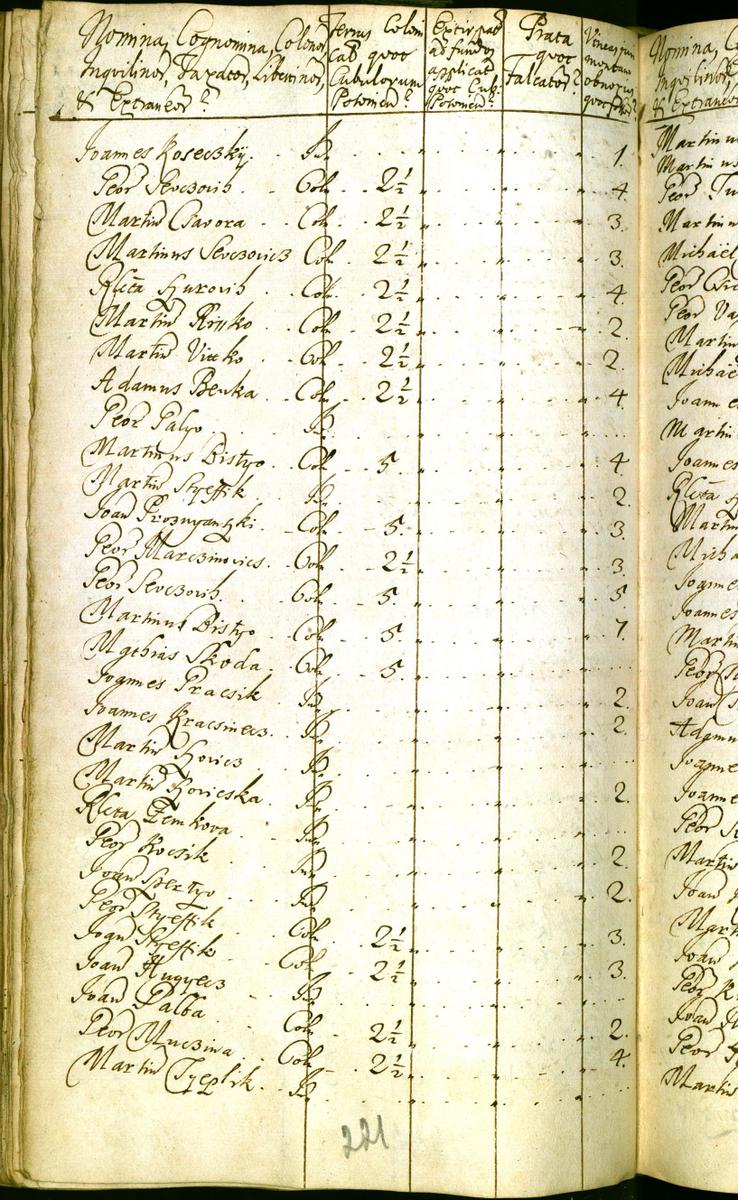 Nomina, Cognomina, Colonor
Inqvilinor, Taxator, Libertinor,
& Extraneor
Terrus Coloni
cat quot
Cubulorum
Posonien
Extirpat
ad fundos
applicat
quot Cub.
Posonien
Prata
quot
Falcator
Vineas
montan
obnoxius
quot
Joannes Koseczky In 1
Petr Sevczovits Col. 2½ 4
Martin Csavora Col. 2½ 3
Martinus Sevczovics Col. 2½ 3
Rlcta Hurovits Col. 2½ 4
Martin Krisko Col. 2½ 2
Martin Vitko Col. 2½ 2
Adamus Benka Col. 2½ 4
Petr Palyo In
Martinus Bistyo Col. 5 4
Martin Styeffik In 2
Joan Prosnyanszki Col. 5 3
Petr Marczinovics Col. 2½ 3
Petr Sevczovits Col. 5 5
Martinus Bistyo Col. 5 7
Mathias Skoda Col. 5
Joannes Pracsik In 2
Joannes Kracsinecz In 2
Martin Kovics In
Martin Kovicska In 2
Rlcta Zemkova In
Petr Kocsik In 2
Joan Spertyo In 2
Petr Styeffik Col. 2½ 3
Joan Streffik Col. 2½ 3
Joan Hugyecz In
Joan Palba Col. 2½ 2
Petr Muczina Col. 2½ 4
Martin Tyeplik In
221
Nomina,
Inqvilinor
& Extraneor
Martin
Martin
Petr
Martin
Michael
Petr
Petr
Martin
Michael
Joann
Martin
Joannes
Rlcta
Martin
Micha
Joannes
Joannes
Martin
Petr
Joan
Adamu
Joannes
Joannes
Petr
Martin
Joan
Mart
Joan
Petr
Joan
Petr
Martin